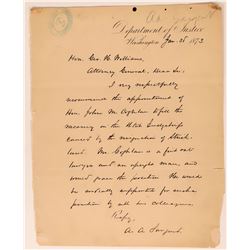 A. A. Sargent
Department of Justice
Washington Jan. 28 1873
Hon. Geo. H. Williams,
Attorney General, Dear Sir:
I very respectfully
recommend the appointment of
Hon. John M. Coghlan to fill the
vacancy on the Utah Judgeship
caused by the resignation of Strick-
land. Mr. Coghlan is a first rate
lawyer and an upright man, and
would grace the position. He would
be cordially supported for such
position by all his colleagues.
Respy,
A. A. Sargent.